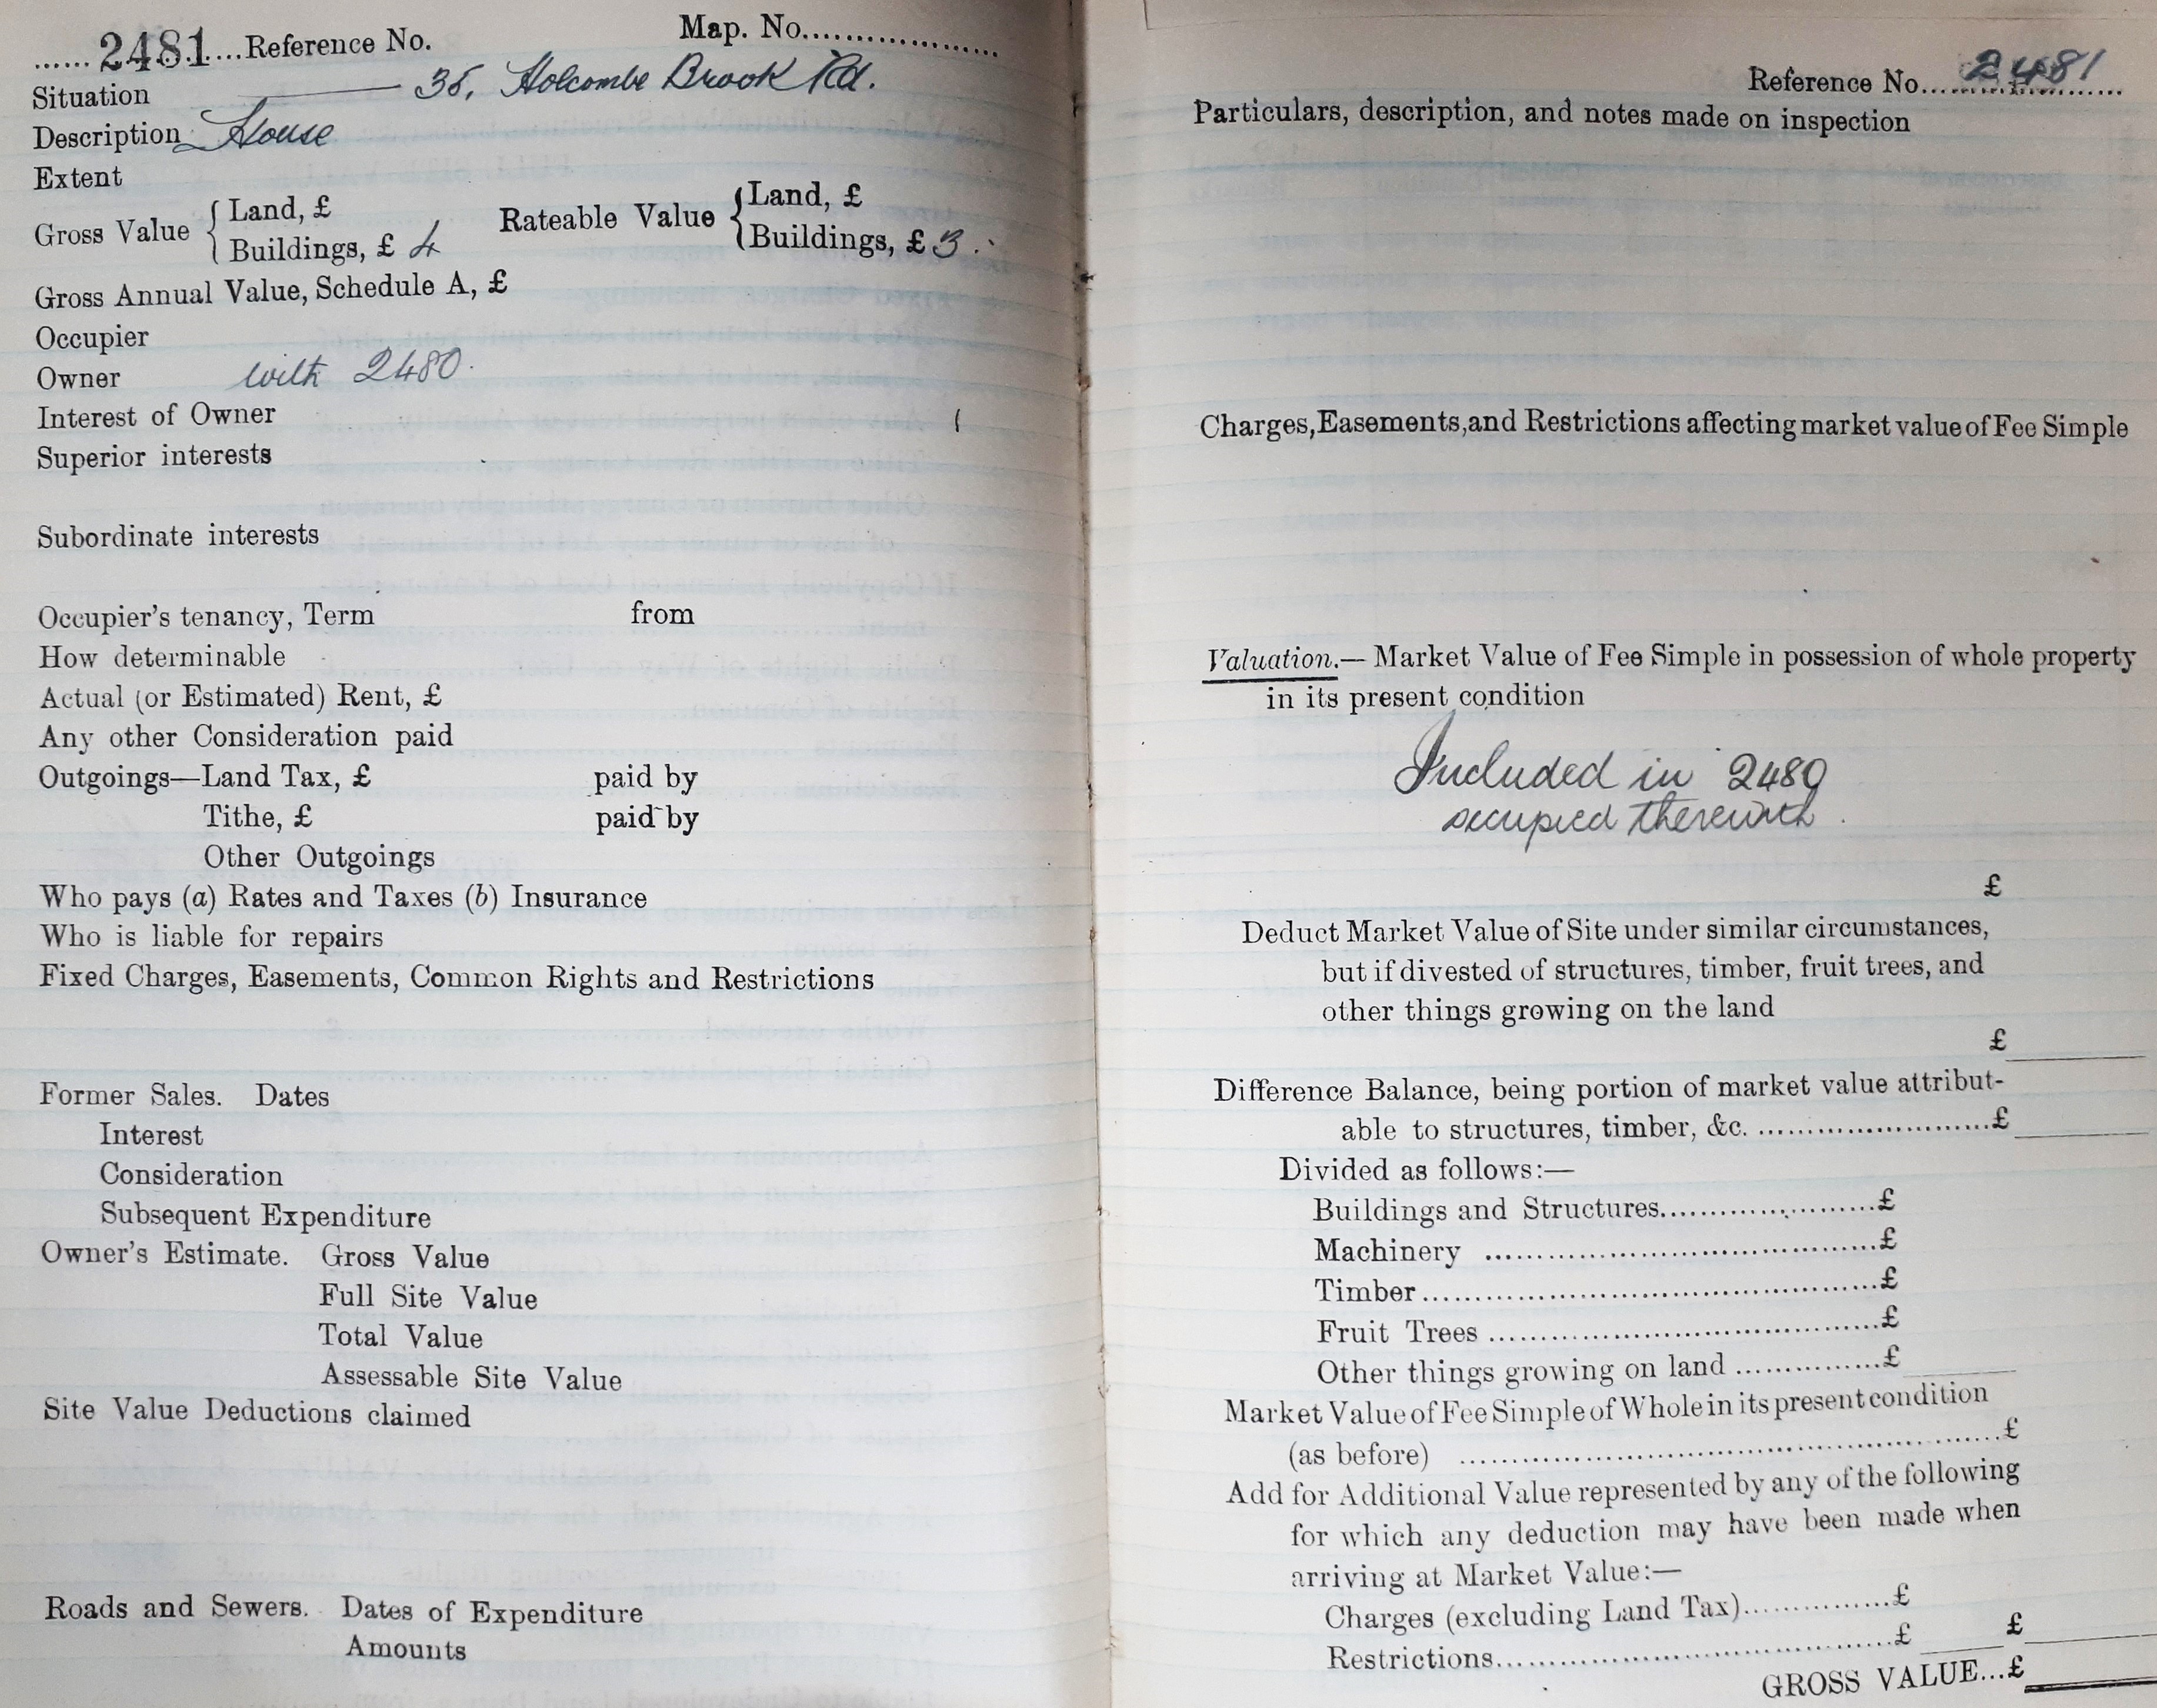 ......2481...Reference No. Map. No...................
Situation ——— 35, Holcombe Brook Rd.
Description House
Extent
Gross Value { Land, £ Rateable Value { Land, £
Buildings, £ 4 Buildings, £ 3.
Gross Annual Value, Schedule A, £
Occupier
Owner with 2480.
Interest of Owner
Superior interests
Subordinate interests
Occupier's tenancy, Term from
How determinable
Actual (or Estimated) Rent, £
Any other Consideration paid
Outgoings—Land Tax, £ paid by
Tithe, £ paid by
Other Outgoings
Who pays (a) Rates and Taxes (b) Insurance
Who is liable for repairs
Fixed Charges, Easements, Common Rights and Restrictions
Former Sales. Dates
Interest
Consideration
Subsequent Expenditure
Owner's Estimate. Gross Value
Full Site Value
Total Value
Assessable Site Value
Site Value Deductions claimed
Roads and Sewers. Dates of Expenditure
Amounts
Reference No. 2481
Particulars, description, and notes made on inspection
Charges, Easements, and Restrictions affecting market value of Fee Simple
Valuation.— Market Value of Fee Simple in possession of whole property
in its present condition
Included in 2480
occupied therewith.
£
Deduct Market Value of Site under similar circumstances,
but if divested of structures, timber, fruit trees, and
other things growing on the land
£
Difference Balance, being portion of market value attribut-
able to structures, timber, &c. ........................£
Divided as follows:—
Buildings and Structures......................£
Machinery ........................................£
Timber..............................................£
Fruit Trees .......................................£
Other things growing on land ...............£
Market Value of Fee Simple of Whole in its present condition
(as before) ......................................................£
Add for Additional Value represented by any of the following
for which any deduction may have been made when
arriving at Market Value:—
Charges (excluding Land Tax)...............£
Restrictions.......................................£ £
GROSS VALUE...£